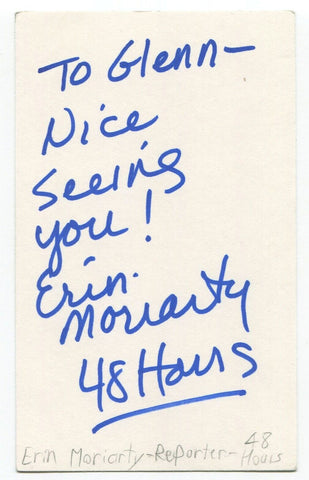 To Glenn-
Nice
Seeing
you!
Erin
Moriarty
48 Hours
Erin Moriarty-Reporter- 48
Hours